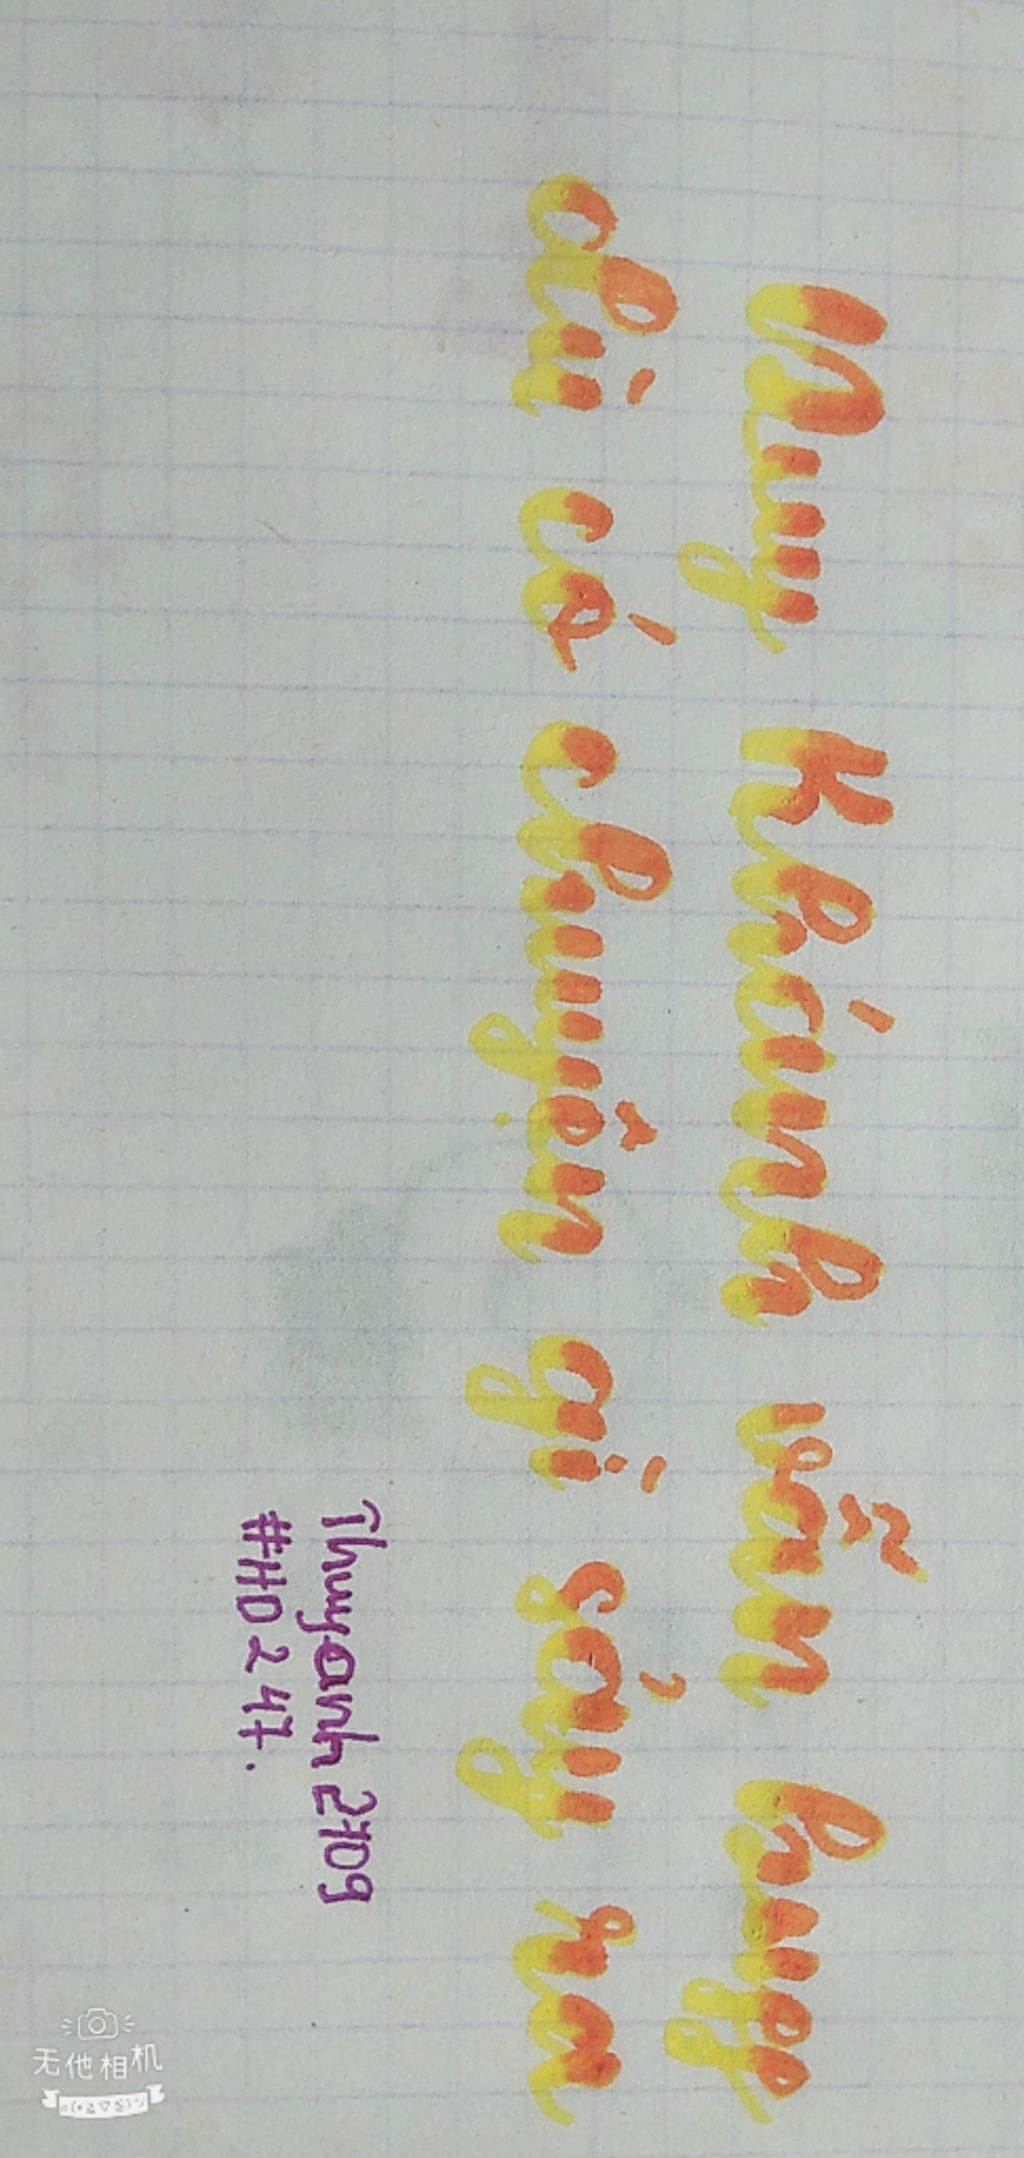 Nuy Khánh vẫn
chì có chuyện gì sảy ra
Thuyanh2709
#HD247.
无他相机